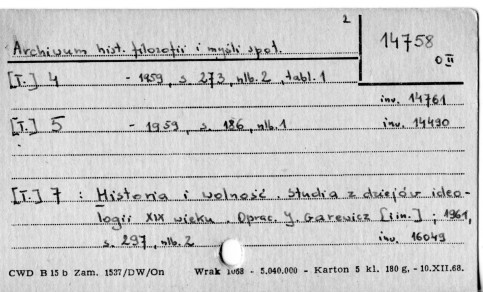 2
Archiwum hist. filozofii i myśli społ.
14758
0 II
[T.] 4 - 1959, s. 273, nlb. 2, tabl. 1
inv. 14761
[T.] 5 - 1959, s. 186, nlb. 1
inv. 14490
[T.] 7 : Historia i wolność. Studia z dziejów ideo-
logii XIX wieku. Oprac. J. Garewicz [i in.] : 1961,
s. 297, nlb. 2
inv. 16049
CWD B 15 b Zam. 1537/DW/On Wrak 1068 - 5.040.000 - Karton 5 kl. 180 g, - 10.XII.68.